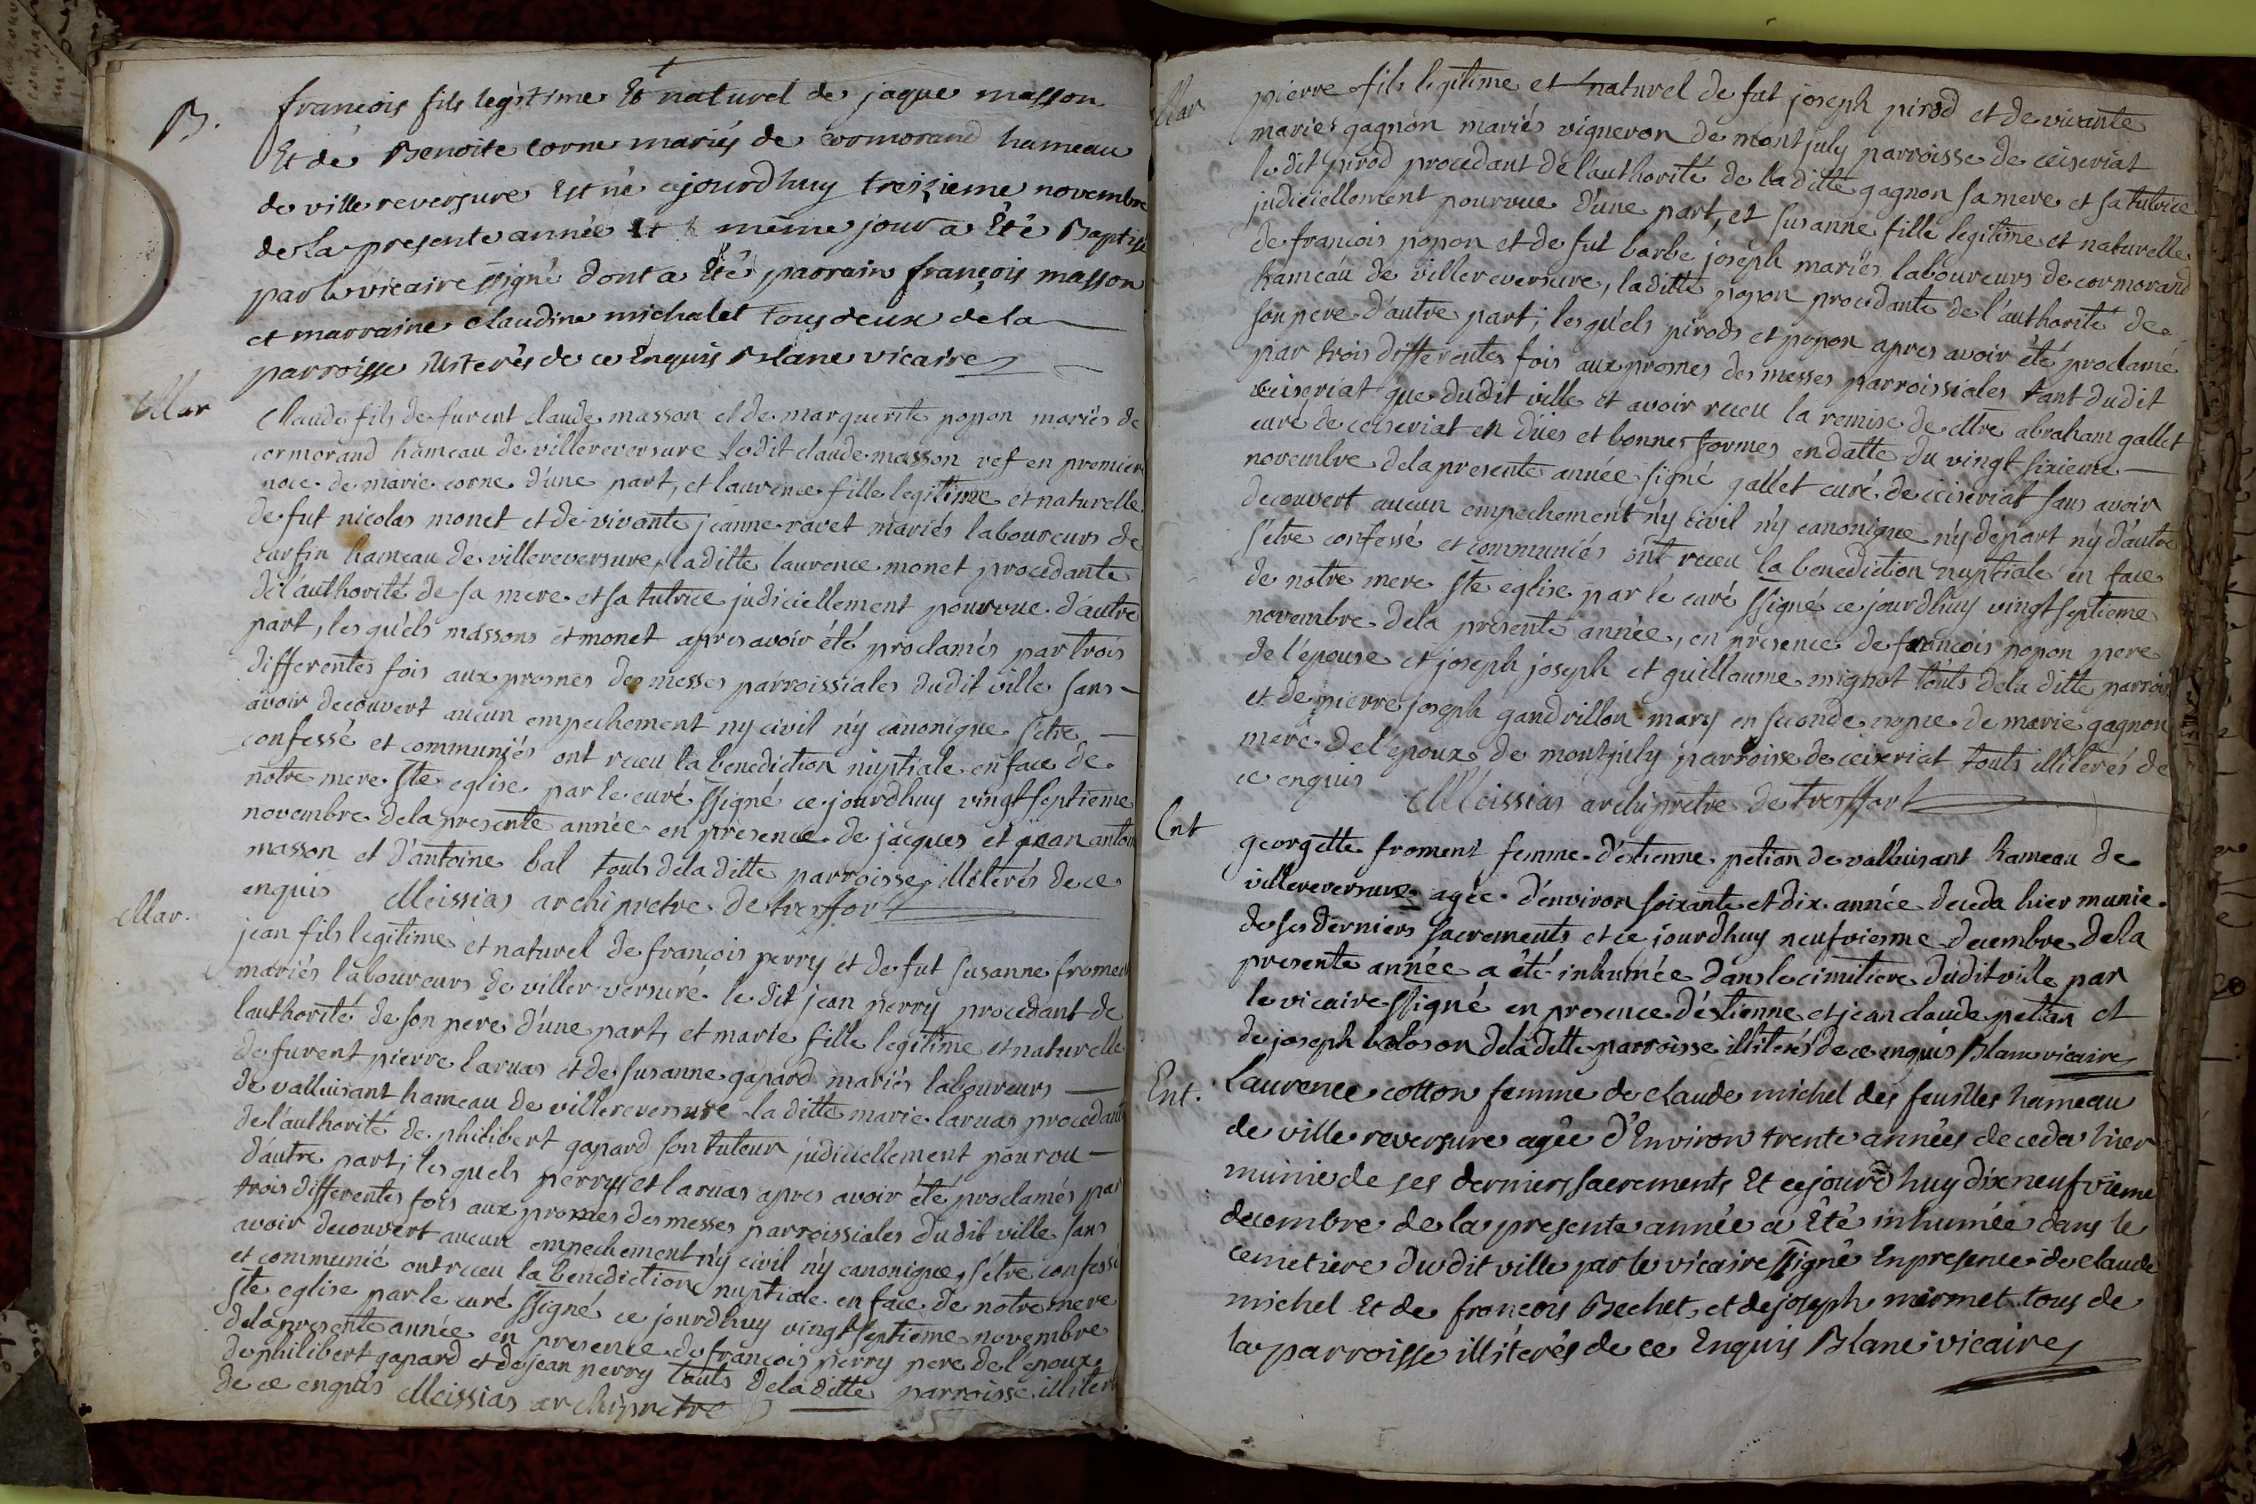 B.
francois fils legitime Et naturel de jaque masson
Et de Benoite corne mariés de cormorand hameau
de villereversure Est né cejourdhuy treizieme novembre
de la presente année Et le même jour a Eté Baptisé
par le vicaire ssigné dont a Eté parrain françois masson
et marraine claudine michalet tous deux de la
parroisse illiterés de ce Enquis Blanc vicaire
Mar
Claude fils de furent claude masson et de marguerite popon mariés de
cormorand hameau de villereversure ledit claude masson vef en premiere
noce de marie corne d'une part, et laurence fille legitime et naturelle
de fut nicolas monet et de vivante jeanne ravet mariés laboureurs de
curfin hameau de villereversure, laditte laurence monet procedante
de l'authorité de sa mere et sa tutrice judiciellement pourvue d'autre
part, les qu'els massons et monet apres avoir été proclamés par trois
differentes fois aux prosnes des messes parroissiales dudit ville sans
avoir decouvert aucun empechement ny civil n'y canonique s'etre
confessé et communiés ont receu la benediction nuptiale en face de
notre mere ste eglise par le curé ssigné ce jourdhuy vingt septieme
novembre dela presente année en presence de jacques et jean antoine
masson et d'antoine bal touts dela ditte parroisse illiterés de ce
enquis Meissias archipretre de treffort
Mar.
jean fils legitime et naturel de françois perry et de fut susanne froment
mariés laboureurs de villereversure le dit jean perry procedant de
l'authorité de son pere d'une part, et marie fille legitime et naturelle
de furent pierre laruas et de susanne gapard mariés laboureurs
de valluisant hameau de villereversure la ditte marie laruas procedant
de l'authorité de philibert gapard son tuteur judiciellement pourvu
d'autre part; les quels perrys et laruas apres avoir été proclamés par
trois differentes fois aux prosnes des messes parroissiales dudit ville sans
avoir decouvert aucun empechement n'y civil n'y canonique, s'etre confessé
et communié ont receu la benediction nuptiale en face de notre mere
ste eglise par le curé ssigné ce jourdhuy vingt septieme novembre
dela presente année en presence de françois perry pere de l'epoux
de philibert gapard et de jean perry touts dela ditte parroisse illiterés
de ce enquis Meissias archipretre
Mar
pierre fils legitime et naturel de fut joseph pirod et de vivante
marie gagnon mariés vigneron de montjuly parroisse de ceiseriat
le dit pirod procedant de l'authorité de la ditte gagnon sa mere et sa tutrice
judiciellement pourvue d'une part, et susanne fille legitime et naturelle
de francois popon et de fut barbe joseph mariés laboureurs de cormorand
hameau de villereversure, laditte popon procedante de l'authorité de
son pere d'autre part; les qu'els pirods et popon apres avoir été proclamé
par trois differentes fois aux prosnes des messes parroissiales tant dudit
ceiseriat que dudit ville et avoir receu la remise de Mre abraham gallet
curé de ceiseriat en dües et bonnes formes en datte du vingt sixieme
novembre dela presente année signé gallet curé de ceiseriat sans avoir
decouvert aucun empechement n'y civil n'y canonique n'y départ n'y d'autre
s'etre confessé et communiés ont receu la benediction nuptiale en face
de notre mere ste eglise par le curé ssigné ce jourdhuy vingt septieme
novembre dela presente année, en presence de francois popon pere
de l'épouse et joseph joseph et guillaume mignot touts dela ditte parroisse
et de pierre joseph gandrillon mary en seconde nopce de marie gagnon
mere de l'epoux de montjuly parroisse de ceiseriat touts illiterés de
ce enquis Meissias archipretre de treffort
Ent
georgette froment femme d'estienne petion de valluisant hameau de
villereversure agée d'environ soixante et dix année deceda hier munie
de ses derniers sacrements et ce jourdhuy neufviesme decembre dela
presente année a été inhumée dans le cimitiere dudit ville par
le vicaire ssigné en presence d'éstienne et jean claude petian et
de joseph boloson dela ditte parroisse illiterés de ce enquis Blanc vicaire
Ent.
Laurence cotton femme de claude michel des feuilles hameau
de ville reversure agée d'Environ trente années deceda hier
munie de ses derniers sacrements Et cejourd'huy dix neufvieme
decembre de la presente année a Eté inhumée dans le
cemetiere dudit ville par le vicaire ssigné En presence de claude
michel Et de francois Bechet, et de joseph mermet tous de
la parroisse illiterés de ce Enquis Blanc vicaire